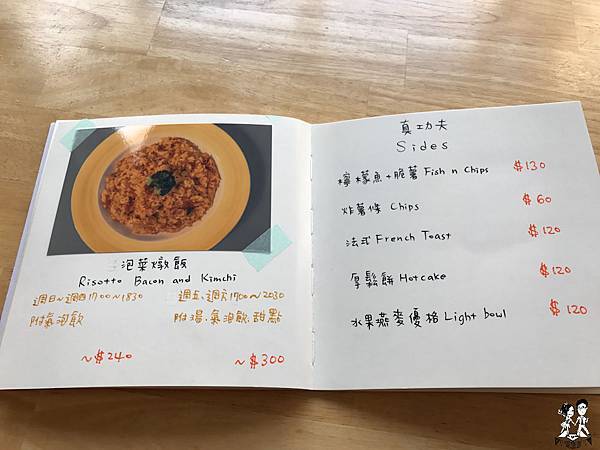 泡菜燉飯
Risotto Bacon and Kimchi
週日~週四1700~1830
附氣泡飲
~$240
週五、週六1700~2030
附湯、氣泡飲、甜點
~$300
真工夫
Sides
檸檬魚+脆薯 Fish n Chips $130
炸薯條 Chips $60
法式 French Toast $120
厚鬆餅 Hotcake $120
水果燕麥優格 Light bowl $120